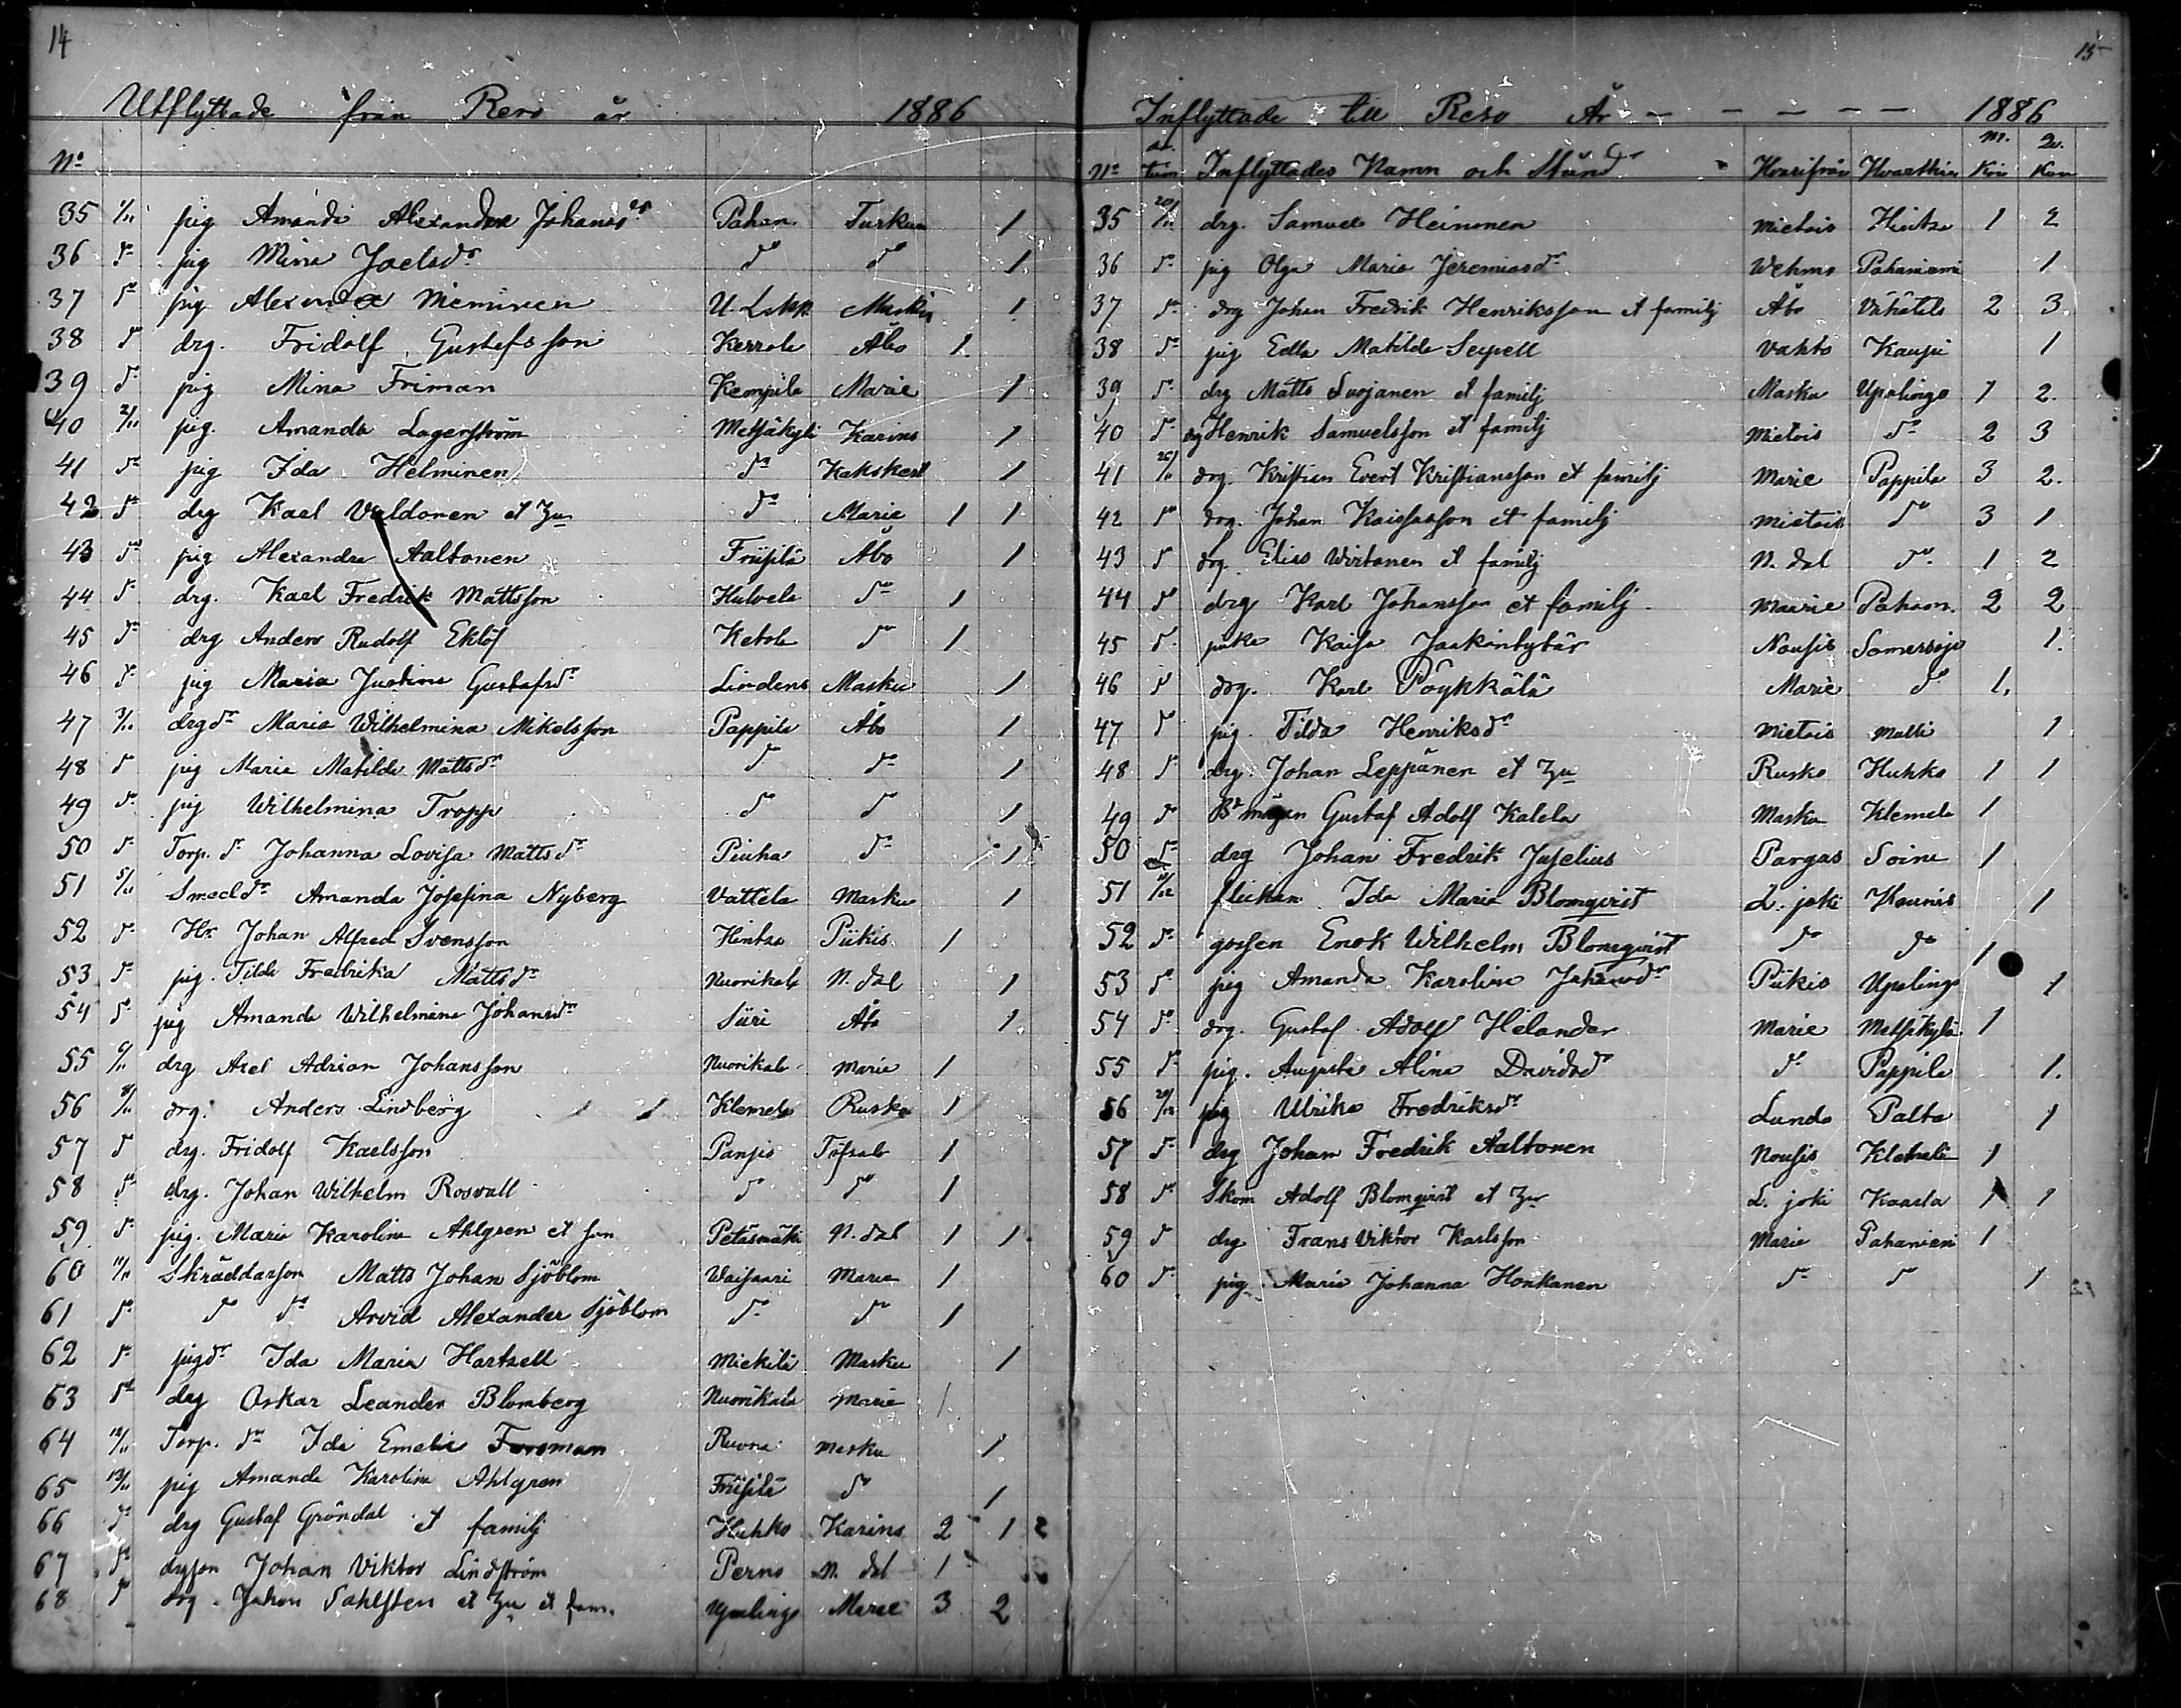 14
Utflyttade från Reso år 1886
No
35 1/11 pig Amanda Alexandra Johansdr Pahan. Turkun 1
36 do pig Mina Joelsdr do do 1
37 do pig Alexandra Nieminen U. Lskp Masku 1
38 do drg. Fridolf Gustafsson Kerrola Åbo 1
39 do pig Mina Friman Kempila Marie 1
40 2/11 pig. Amanda Lagerström Metsäkyli Karins 1
41 do pig Ida Helminen do Kakskert 1
42 do drg Karl Valdonen et Zu do Marie 1 1
43 do pig Alexandra Aaltonen Friisilä Åbo 1
44 do drg. Karl Fredrik Mattsson Hulvela do 1
45 do drg Anders Rudolf Eklöf Ketola do 1
46 do pig Maria Justina Gustafsdr Lindens Masku 1
47 3/11 drgdr Maria Wilhelmina Mikelsson Pappila Åbo 1
48 do pig Maria Matilda Mattsdr do do 1
49 do pig Wilhelmina Tropp do do 1
50 do Torp. dr Johanna Lovisa Mattsdr Piuha do 1
51 5/11 Smeddr Amanda Josefina Nyberg Vattela Masku 1
52 do Hr Johan Alfred Svensson Hintsa Piikis 1
53 do pig. Tilda Fredrika Mattsdr Nuorikala N. dal 1
54 do pig Amanda Wilhelmina Johansdr Siiri Åbo 1
55 6/11 drg Axel Adrian Johansson Nuorikala Marie 1
56 8/11 drg. Anders Lindberg Klemela Rusko 1
57 do drg. Fridolf Karlsson Panjio Töfsala 1
58 do drg. Johan Wilhelm Rosvall do do 1
59 do pig. Maria Karolina Ahlgren et son Petäsmäki N. dal 1 1
60 11/11 Skräddarson Matts Johan Sjöblom Waisaari Marie 1
61 do do do Arvid Alexander Sjöblom do do 1
62 do pigdr Ida Maria Hartzell Miekilä Masku 1
63 do drg Oskar Leander Blomberg Nuorikala Marie 1
64 12/11 Torp. dr Ida Emelie Forsman Ruona Masku 1
65 13/11 pig Amanda Karolina Ahlgren Friisilä do 1
66 do drg Gustaf Gröndal et familj Huhko Karins 2 1 2
67 do drgson Johan Viktor Lindström Perno N. dal 1
68 do drg. Johan Sahlsten et Zu et fam. Upalingo Marie 3 2
15
Inflyttade till Reso År - - - - - 1886
No datum Inflyttades Namn och Stånd Hvarifrån Hvarthän M. Kön Qv. Kön
35 20/11 drg. Samuel Heinonen Mietois Hintsa 1 2
36 do pig Olga Maria Jeremiasdr Wehmo Pahaniemi 1
37 do drg Johan Fredrik Henriksson et familj Åbo Vähätalo 2 3
38 do pig Edla Matilda Seipell Vahto Kaupi 1
39 do drg Matts Suojanen et familj Masku Upalingo 1 2
40 do drg Henrik Samuelsson et familj Mietois do 2 3
41 26/11 drg. Kristian Evert Kristiansson et familj Marie Pappila 3 2
42 do drg. Johan Kaisasson et familj Mietois do 3 1
43 do drg. Elias Wirtanen et familj N. dal do 1 2
44 do drg Karl Johansson et familj Marie Paham. 2 2
45 do Kaisa Jaakintytär Nousis Somersoja 1
46 do drg. Karl Pöykkälä Marie do 1
47 do pig. Tilda Henriksdr Mietois Malli 1
48 do drg. Johan Leppänen et Zu Rusko Huhko 1 1
49 do Gustaf Adolf Kalela Masku Klemela 1
50 do drg Johan Fredrik Juselius Pargas Soini 1
51 11/12 flickan Ida Maria Blomqvist L. joki Kaunis 1
52 do gossen Enok Wilhelm Blomqvist do do 1
53 do pig Amanda Karolina Johansdr Piikis Upalingo 1
54 do drg. Gustaf Adolf Helander Marie Metsäkylä 1
55 do pig. Augusta Alina Davidsdr do Pappila 1
56 29/12 pig Ulrika Fredriksdr Lundo Palta 1
57 do drg Johan Fredrik Aaltonen Nousis Klemelä 1
58 do Skom Adolf Blomqvist et Zu L. joki Kaarla 1 1
59 do drg Frans Viktor Karlsson Marie Pahaniem 1
60 do pig Maria Johanna Honkanen do do 1